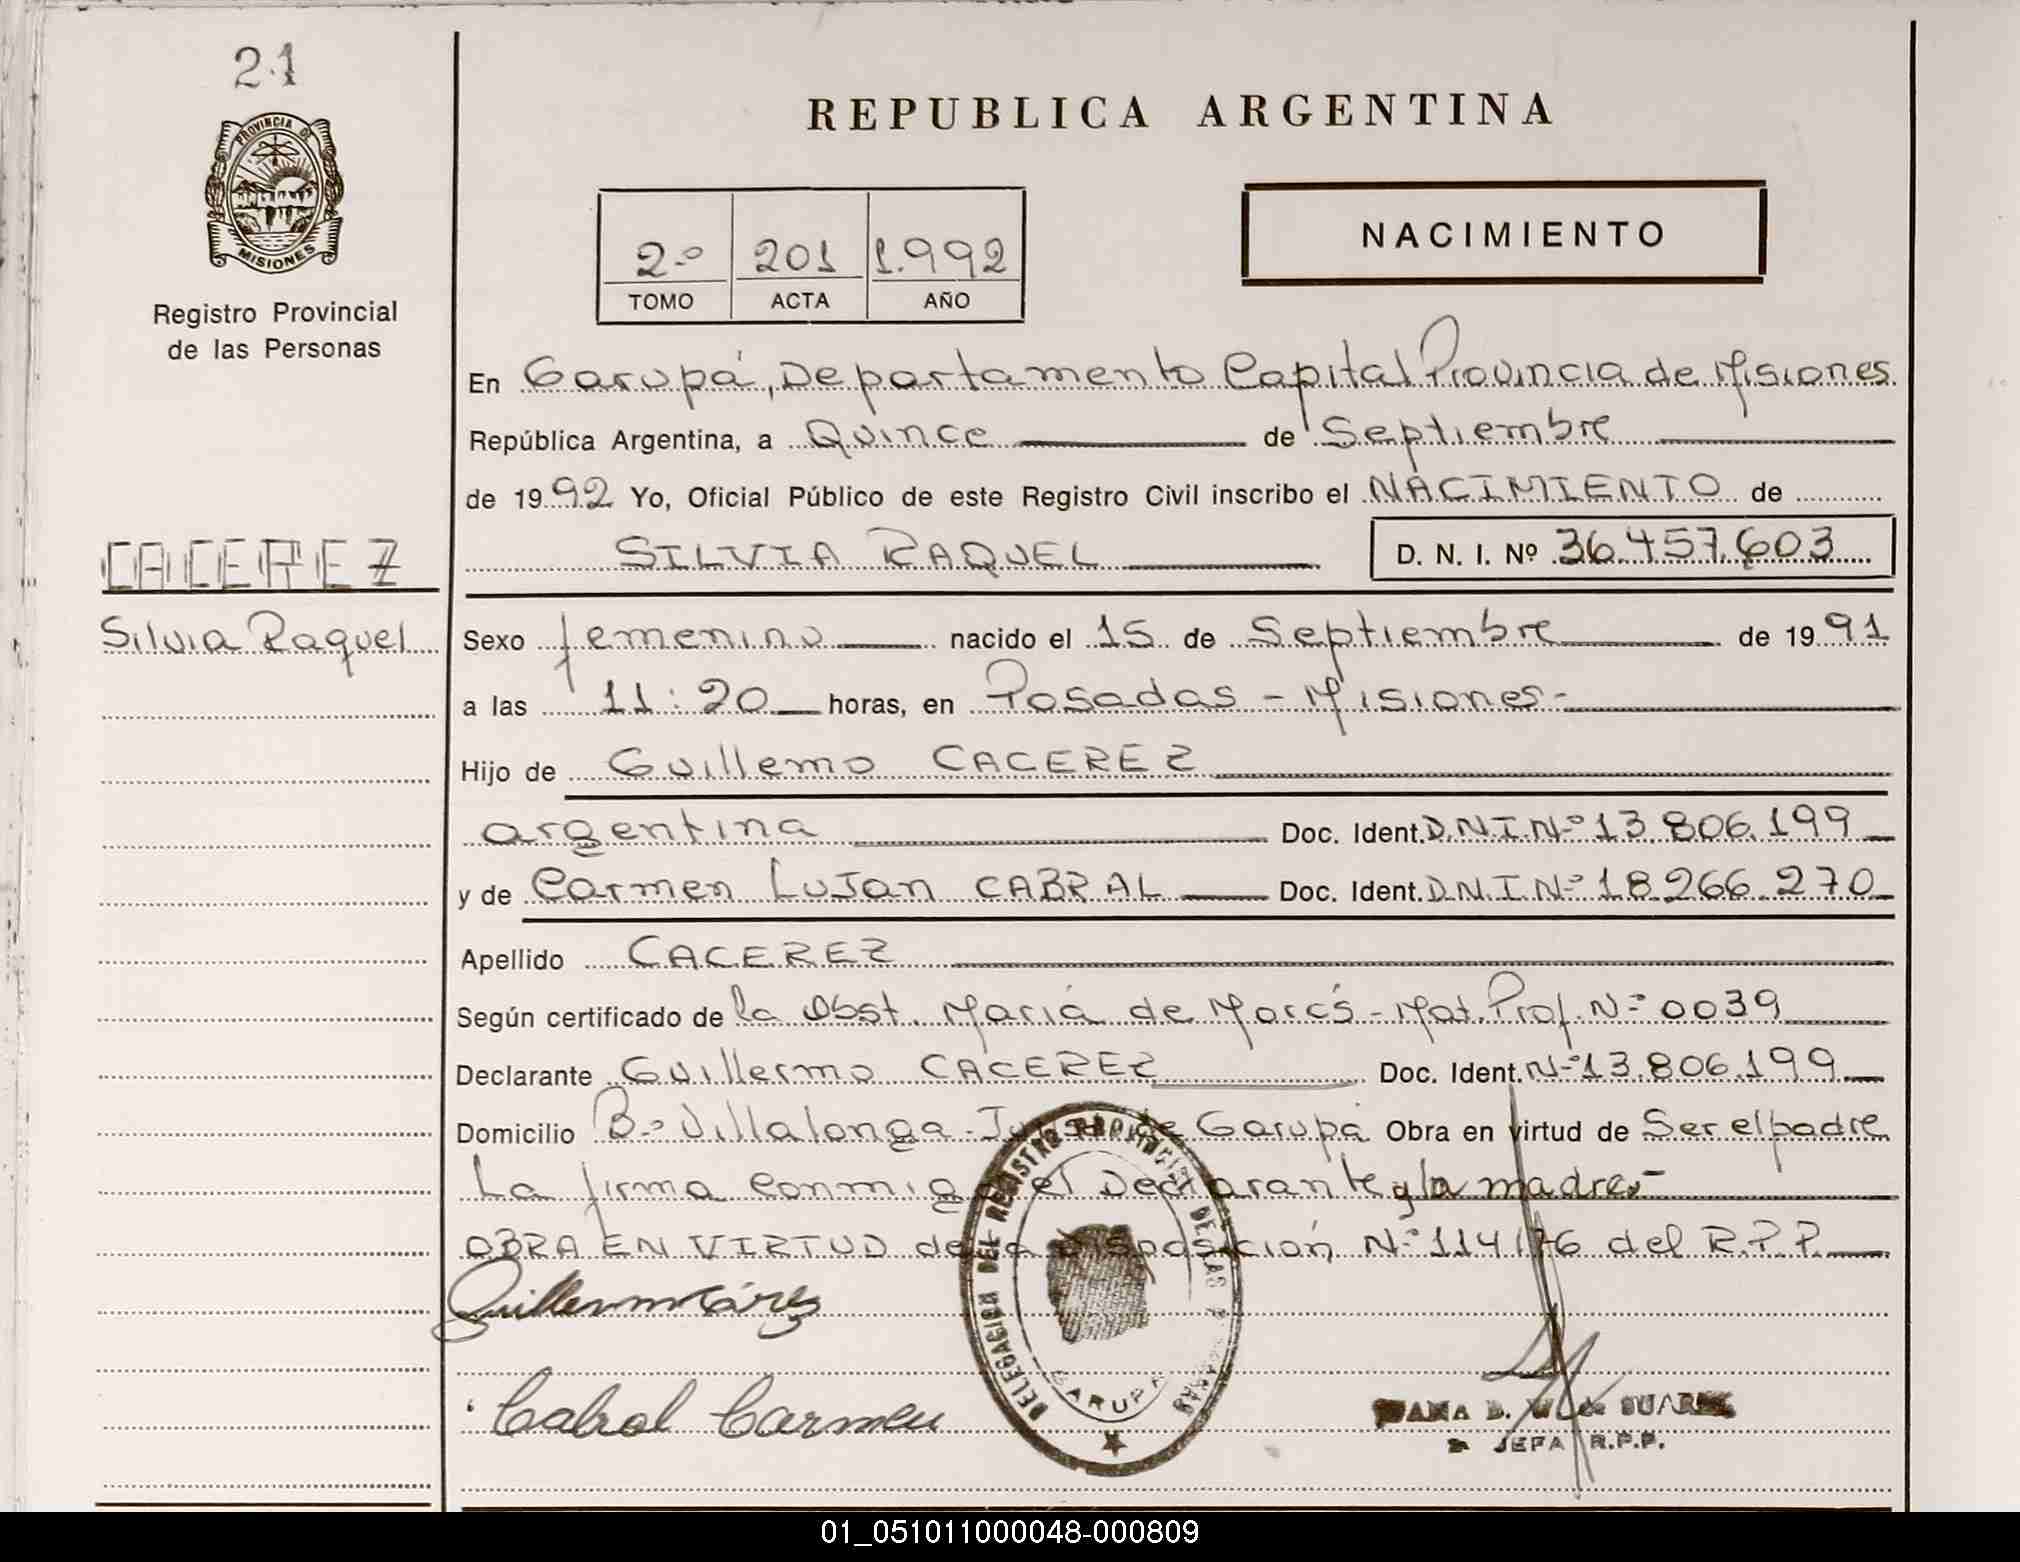 21
PROVINCIA DE
MISIONES
Registro Provincial
de las Personas
REPUBLICA ARGENTINA
2º 201 1.992
TOMO ACTA AÑO
NACIMIENTO
En Garupá, Departamento Capital Provincia de Misiones
República Argentina, a Quince de Septiembre
de 1992 Yo, Oficial Público de este Registro Civil inscribo el NACIMIENTO de
SILVIA RAQUEL D. N. I. Nº 36.457.603
CACEREZ
Silvia Raquel
Sexo femenino nacido el 15 de Septiembre de 1991
a las 11:20 horas, en Posadas - Misiones-
Hijo de Guillemo CACEREZ
argentina Doc. Ident. D.N.I.Nº 13.806.199
y de Carmen LuJan CABRAL Doc. Ident. D.N.I.Nº 18.266.270
Apellido CACEREZ
Según certificado de la Obst. Maria de Marcs - Mat. Prof. Nº 0039
Declarante Guillermo CACEREZ Doc. Ident. Nº 13.806.199
Domicilio Bº Villalonga - de Garupá Obra en virtud de Ser el padre
La firma conmigo el Declarante y la madre.-
OBRA EN VIRTUD de la Disposición Nº 114/76 del R.P.P.
DELEGACION DEL REGISTRO PROVINCIAL DE LAS
GARUPA
Cabral Carmen
JEFA R.P.P.
01_051011000048-000809